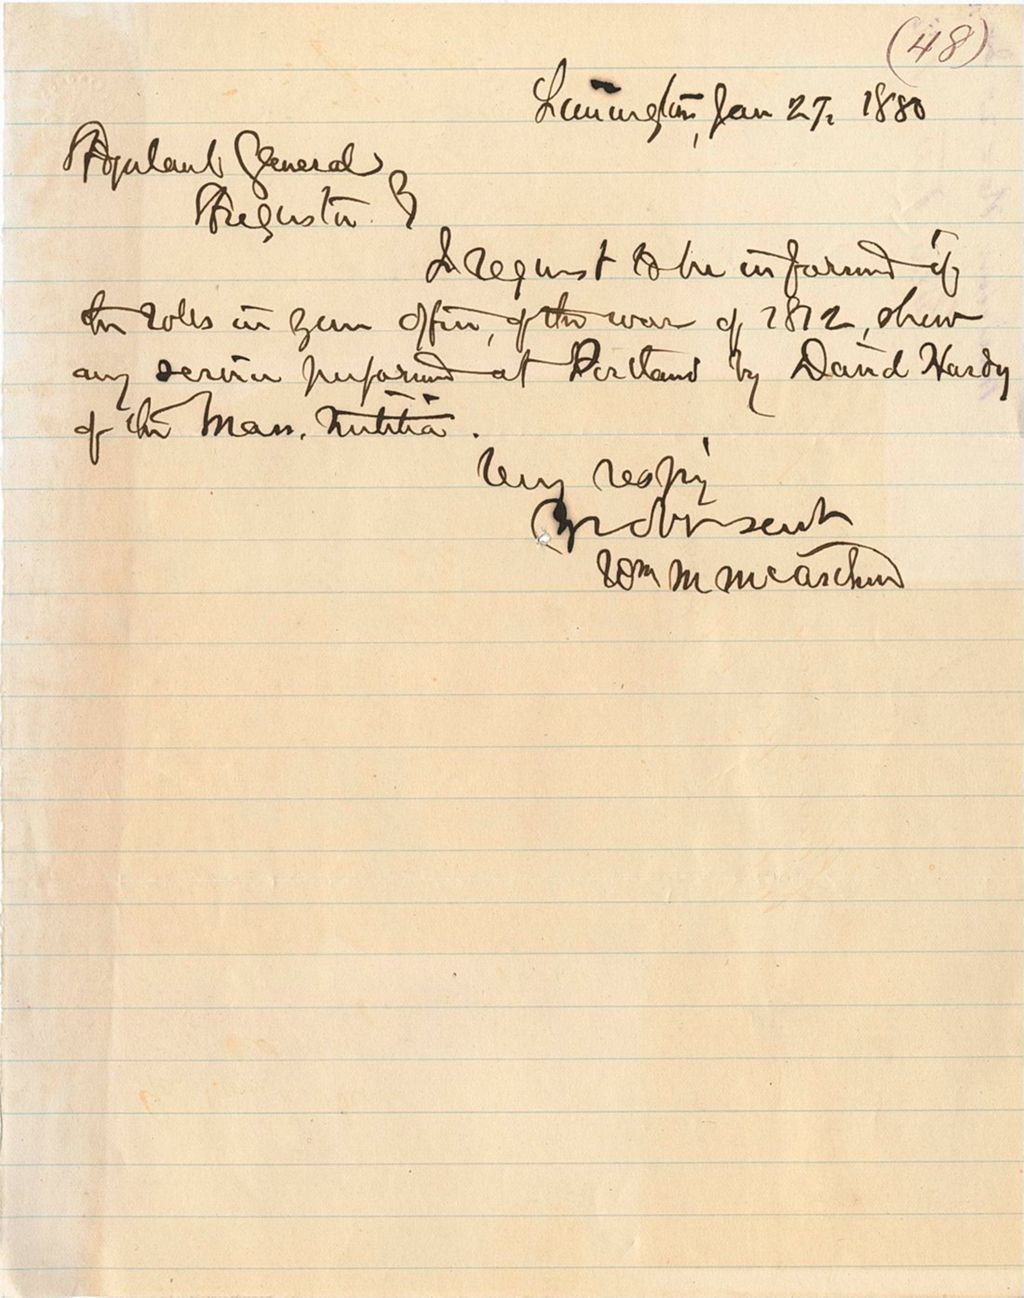 (48)
Limington, Jan 27, 1880
Adjutant General
Augusta
I request to be informed if
the rolls in your office, of the war of 1812, show
any service performed at Portland by David Hardy
of the Mass. militia.
Very resp'y
Yr obt servt
Wm M McArthur